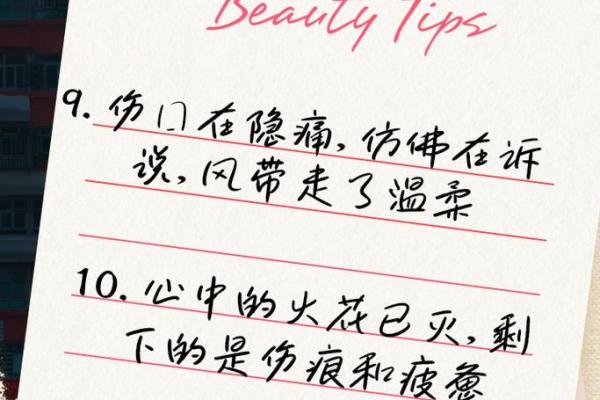 Beauty Tips
9. 伤口在隐痛,仿佛在诉
说,风带走了温柔
10. 心中的火花已灭,剩
下的是伤痕和疲惫